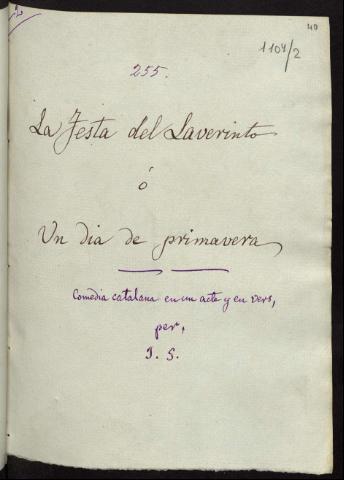 40
1104/2
255.
La Festa del Laverinto
ó
Un dia de primavera
Comedia catalana en un acte y en vers,
per,
J. S.